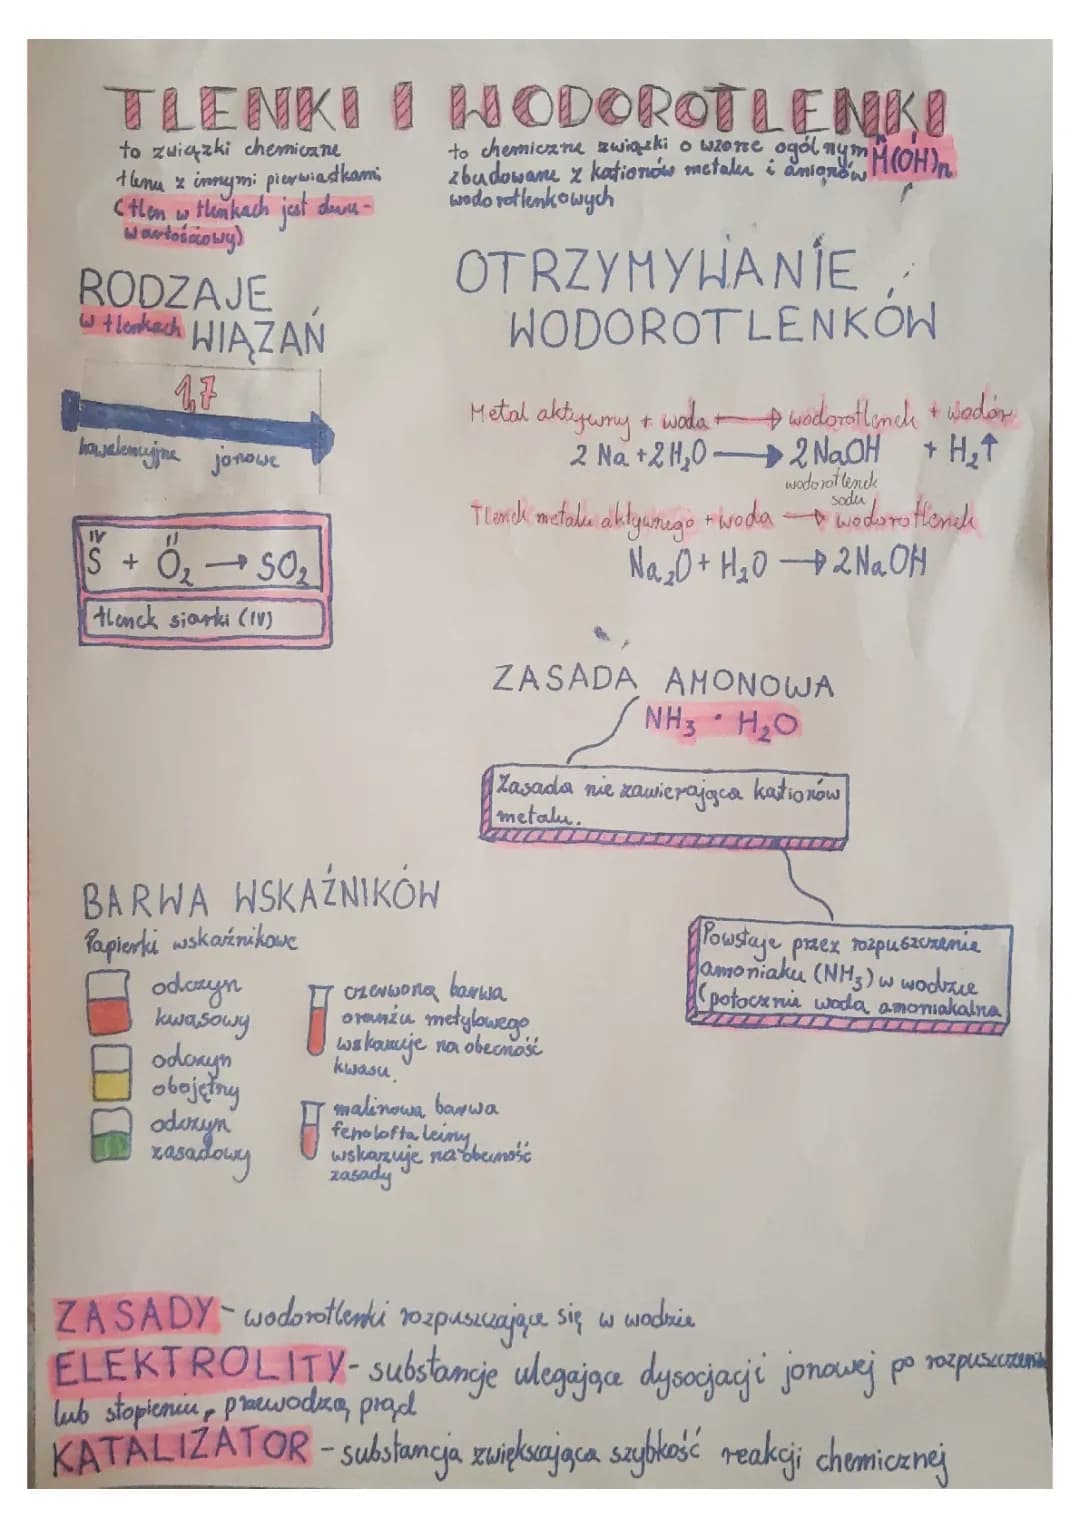 TLENKI I WODOROTLENKI
to związki chemiczne
tlenu z innymi pierwiastkami
(tlen w tlenkach jest dwu-
wartościowy)
to chemiczne związki o wzorze ogólnym M(OH)n
zbudowane z kationów metalu i anionów
wodorotlenkowych
RODZAJE
w tlenkach WIĄZAŃ
1,7
kowalencyjne jonowe
IV II
S + O₂ → SO₂
tlenek siarki (IV)
OTRZYMYWANIE
WODOROTLENKÓW
Metal aktywny + woda → wodorotlenek + wodór
2 Na + 2 H₂O → 2 NaOH + H₂↑
wodorotlenek
sodu
Tlenek metalu aktywnego + woda → wodorotlenek
Na₂O + H₂O → 2 NaOH
ZASADA AMONOWA
NH₃ · H₂O
Zasada nie zawierająca kationów
metalu.
Powstaje przez rozpuszczenie
amoniaku (NH₃) w wodzie
(potocznie woda amoniakalna
BARWA WSKAŹNIKÓW
Papierki wskaźnikowe
odczyn
kwasowy
odczyn
obojętny
odczyn
zasadowy
czerwona barwa
oranżu metylowego
wskazuje na obecność
kwasu.
malinowa barwa
fenoloftaleiny
wskazuje na obecność
zasady
ZASADY - wodorotlenki rozpuszczające się w wodzie
ELEKTROLITY - substancje ulegające dysocjacji jonowej po rozpuszczeniu
lub stopieniu, przewodzą prąd
KATALIZATOR - substancja zwiększająca szybkość reakcji chemicznej